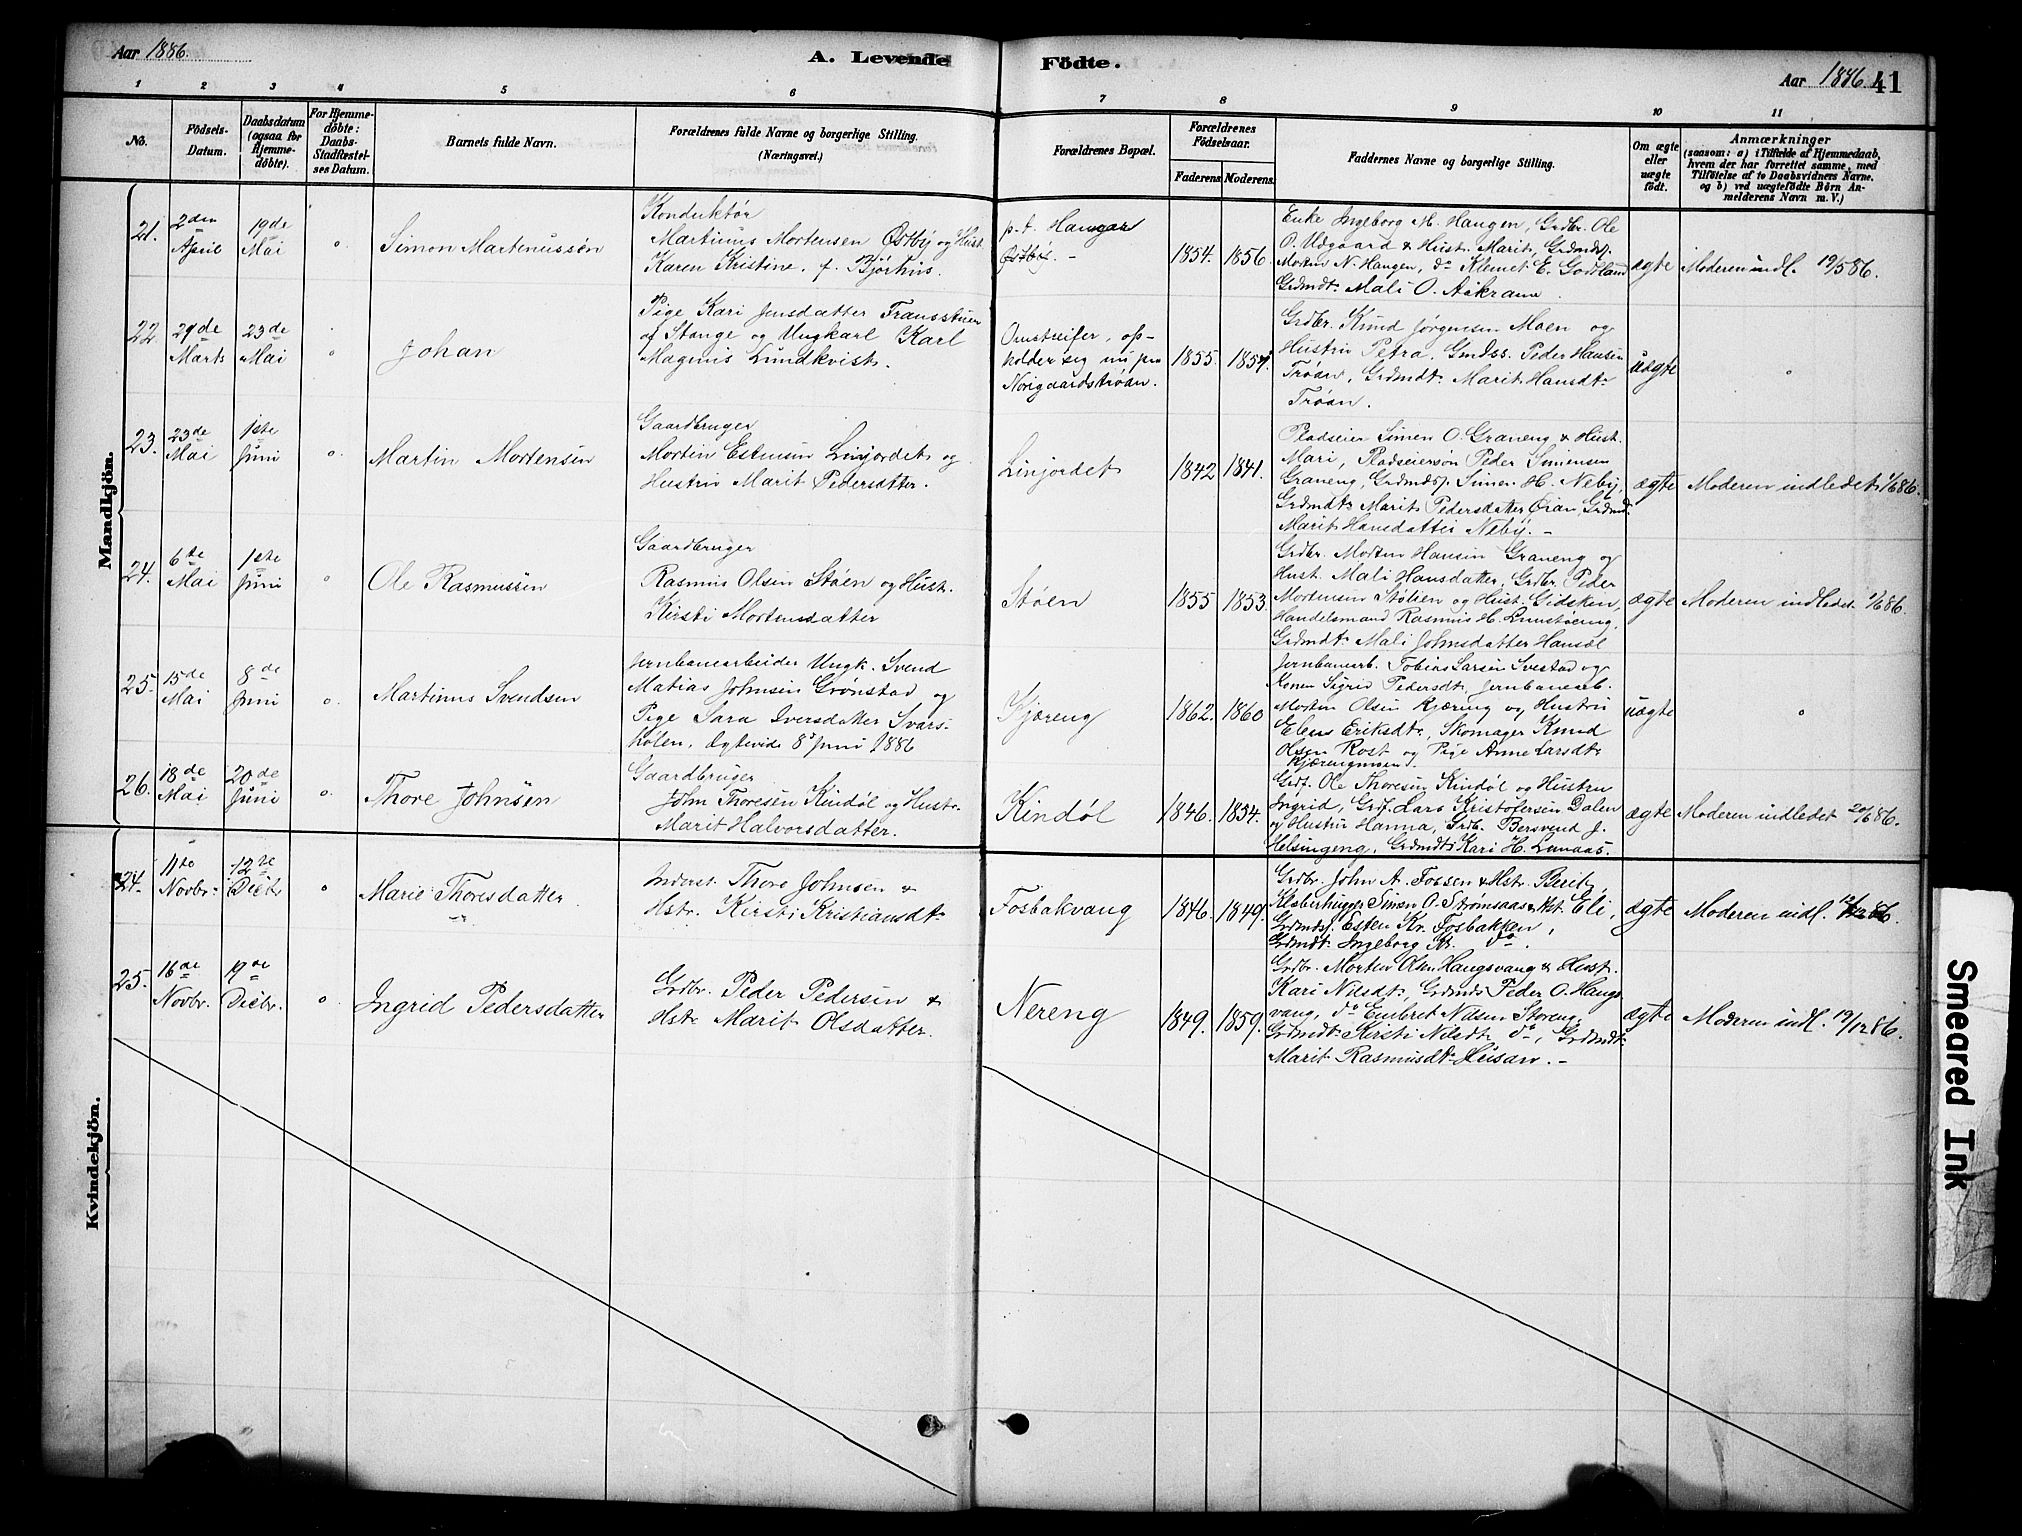 Aar 1886.
A. Levende Födte.
Aar 1886. 41
1 2 3 4 5 6 7 8 9 10 11
No.
Födsels-Datum.
Daabsdatum (ogsaa for Hjemme-döbte).
For Hjemme-döbte: Daabs-Stadfæstel-ses Datum.
Barnets fulde Navn.
Forældrenes fulde Navne og borgerlige Stilling.
(Næringsvei.)
Forældrenes Bopæl.
Forældrenes Födselsaar.
Faderens. Moderens.
Faddernes Navne og borgerlige Stilling.
Om ægte eller uægte födt.
Anmærkninger
(saasom: a) i Tilfælde af Hjemmedaab, hvem der har forrettet samme, med Tilföielse af to Daabsvidners Navne, og b) ved uægtefödte Börn An-melderens Navn m. V.)
Mandkjön.
21. 2den April 19de Mai o Simon Martinussen
Konduktör
Martinus Mortensen Østby og Hust.
Karen Kristine, f. Bjørhus.
p.t. Haugan
Østby. -
1854. 1856.
Enke Ingeborg M. Haugen, Grdbr. Ole
O. Udgaard & Hust. Marit, Grdmdsp.
Morten N. Haugen, do Klemet E. Godtland
Grdmdt. Mali O. Aakrann.
ægte Moderen indl. 19/5 86.
22. 29de Marts 23de Mai o Johan
Pige Kari Jensdatter Fransstuen
af Stange og Ungkarl Karl
Magnus Lundkvist.
Omstreifer, op-
holder sig nu paa
Norigaardstrøan.
1855. 1857.
Grdbr. Knud Jørgensen Moen og
Hustru Petra, Gmdss. Peder Hansen
Trøan, Grdmdt. Marit Hansdt.
Trøan.
uægte o
23. 23de Mai 1ste Juni o Martin Mortensen
Gaardbruger
Morten Estensen Linjordet og
Hustru Marit Pedersdatter.
Linjordet 1842 1841.
Pladseier Simen O. Graneng & Hust.
Mari, Pladseiersøn Peder Simensen
Graneng, Grdmdsp. Simen H. Neby,
Grdmdt. Marit Pedersdatter Øian, Grdmdt.
Marit Hansdatter Neby. -
ægte Moderen indledet 1/6 86.
24. 6te Mai 1ste Juni o Ole Rasmussen
Gaardbruger
Rasmus Olsen Støen og Hust.
Kirsti Mortensdatter
Støen 1855 1853.
Grdbr. Morten Hansen Graneng og
Hust. Mali Hansdatter, Grdbr. Peder
Mortensen Stølien og Hust. Gidsken,
Handelsmand Rasmus H. Tunstvaing,
Grdmdt. Mali Johnsdatter Hansøl
ægte Moderen indledet 1/6 86.
25. 15de Mai 8de Juni o. Martinus Svendsen
Jernbanearbeider Ungk. Svend
Matias Johnsen Grønstad og
Pige Sara Iversdatter Svars-
hølen, Ægteviede 8de Juni 1886
Kjæreng 1862. 1860
Jernbanearb. Tobias Larsen Svestad og
Konen Sigrid Pedersdt., Jernbanearb.
Morten Olsen Kjæreng og Hustru
Elens Eriksdt., Skomager Knud
Olsen Rost og Pige Anne Larsdt.
Kjærengmoen.
uægte o
26. 18de Mai 20de Juni o. Thore Johnsen
Gaardbruger
John Thoresen Kindøl og Hust.
Marit Halvorsdatter.
Kindøl 1846. 1854.
Grdf. Ole Thoresen Kindøl og Hustru
Ingrid, Grdf. Lars Kristofersen Dalen
og Hustru Hanna, Grdb. Bersvend J.
Helsingeng, Grdmdt. Kari H. Lunaas.
ægte Moderen indledet 20/6 86.
Kvindekjön.
24. 11te Novbr. 12te Decbr o Marie Thoresdatter.
Inderst. Thore Johnsen &
Hstr. Kirsti Kristiansdt.
Fosbakvang 1846. 1849.
Grdbr. John A. Fossen & Hstr. Berit,
Klæberhugger Simen O. Strømsaas & Hst. Eli,
Grdmdsf. Esten Kr. Fosbakken,
Grdmdt. Ingeborg Kr. do.
ægte Moderen indl. 12/12 86.
25. 16de Novbr. 19de Decbr. o Ingrid Pedersdatter
Grdbr. Peder Pedersen &
Hstr. Marit Olsdatter.
Nereng 1849. 1859.
Grdbr. Morten Olsen Haugsvang & Hust.
Kari Nilsdt., Grdmds. Peder O. Haugs
vang, do Embret Nilsen Storeng,
Grdmdt. Kirsti Nilsdt. do, Grdmdt.
Marit Rasmusdt. Husan. -
ægte Moderen indl. 19/12 86.
Smeared Ink